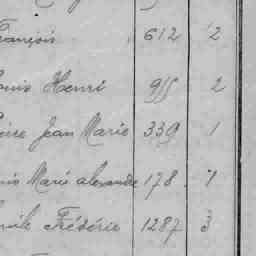 François 612 2
Louis Henri 955 2
Pierre Jean Marie 339 1
Marie Alexandre 178 1
Frédéric 1287 3